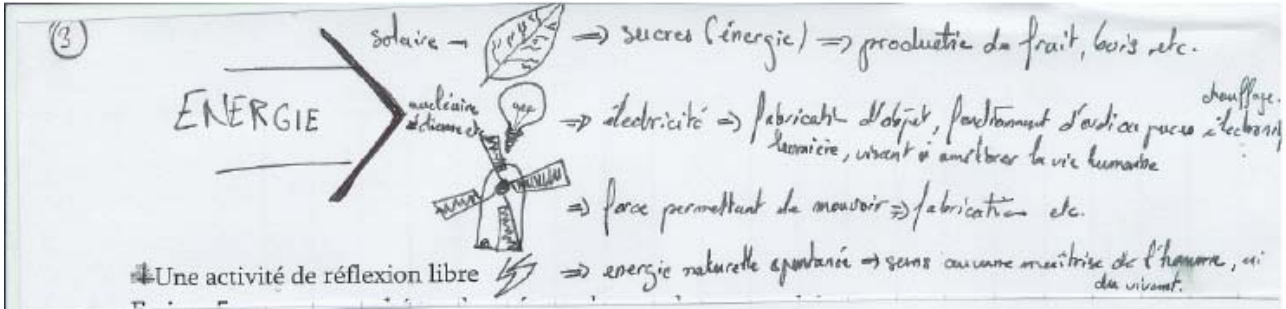 3
solaire → ⇒ sucres (énergie) ⇒ productie de frait, bois, etc.
ENERGIE
nucléaire
éolienne etc
⇒ électricité ⇒ fabricati d'objet,
chauffage.
lumière, visant à améliorer la vie humaine
⇒ force permettant de mouvoir ⇒ fabrication etc.
Une activité de réflexion libre
⇒ energie naturelle spontanée ⇒ sans aucune maîtrise de l'homme, ni
du vivant.